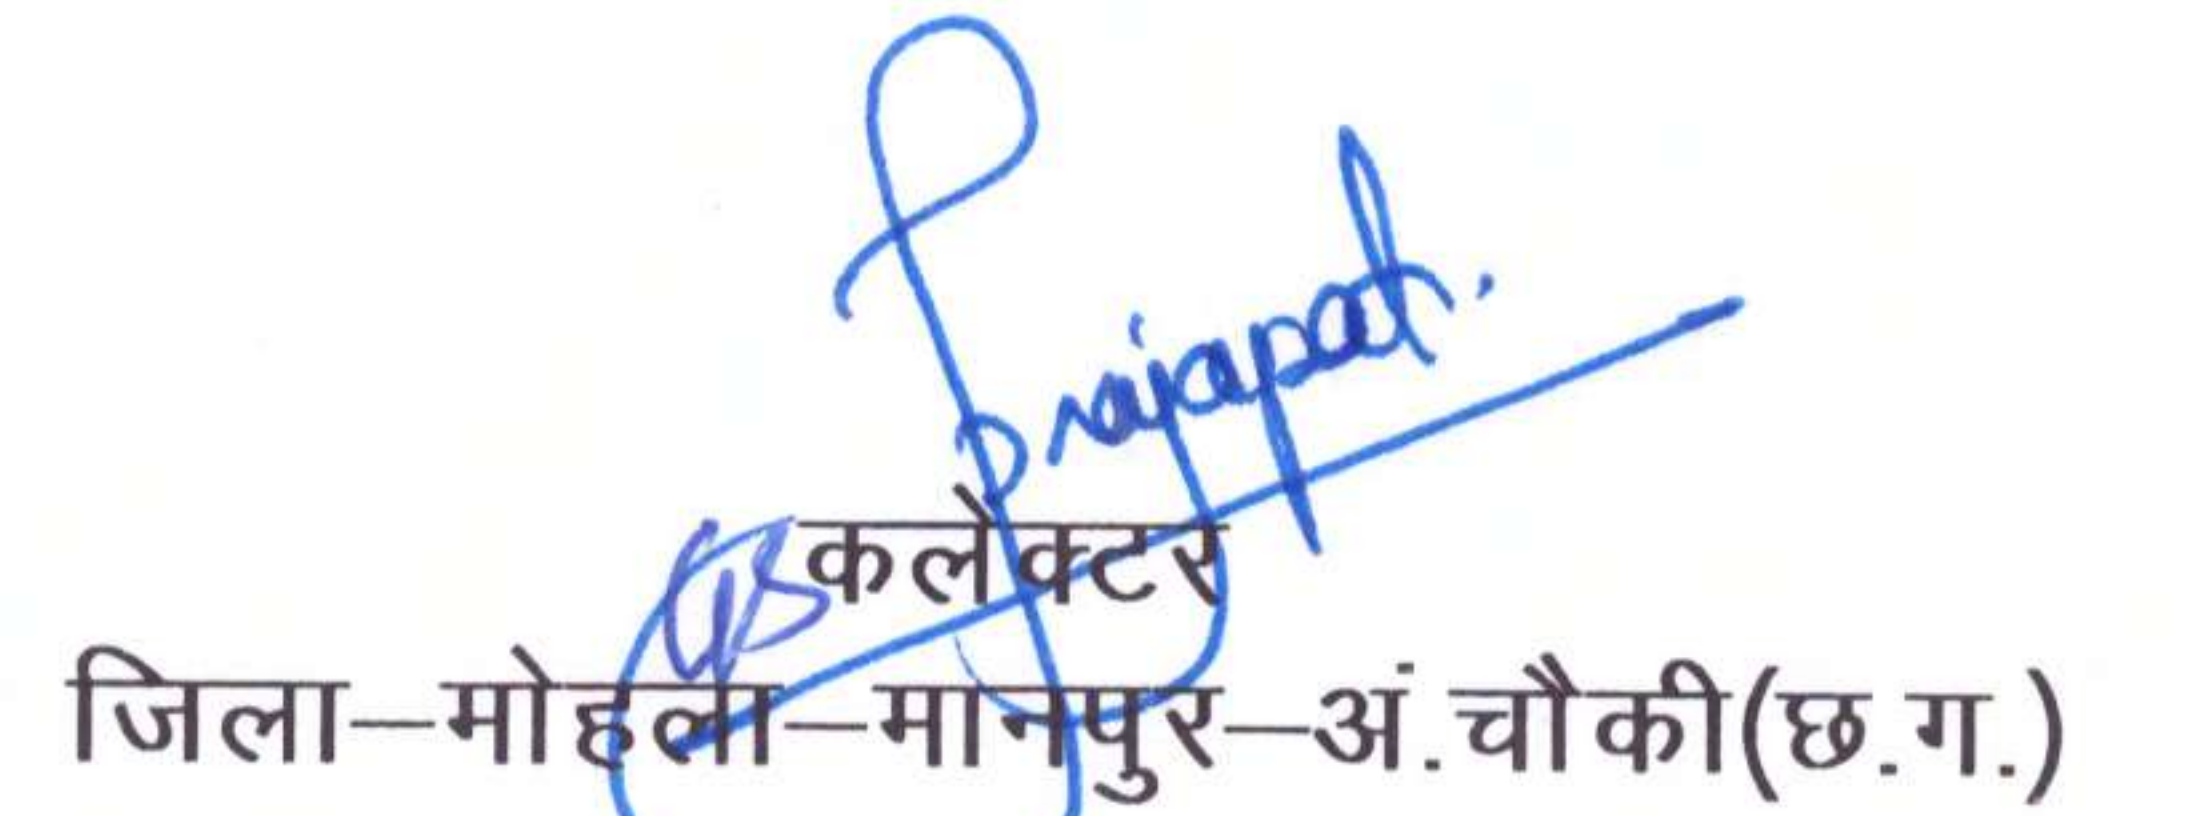 Prajapati
कलेक्टर
जिला–मोहला–मानपुर–अं.चौकी(छ.ग.)